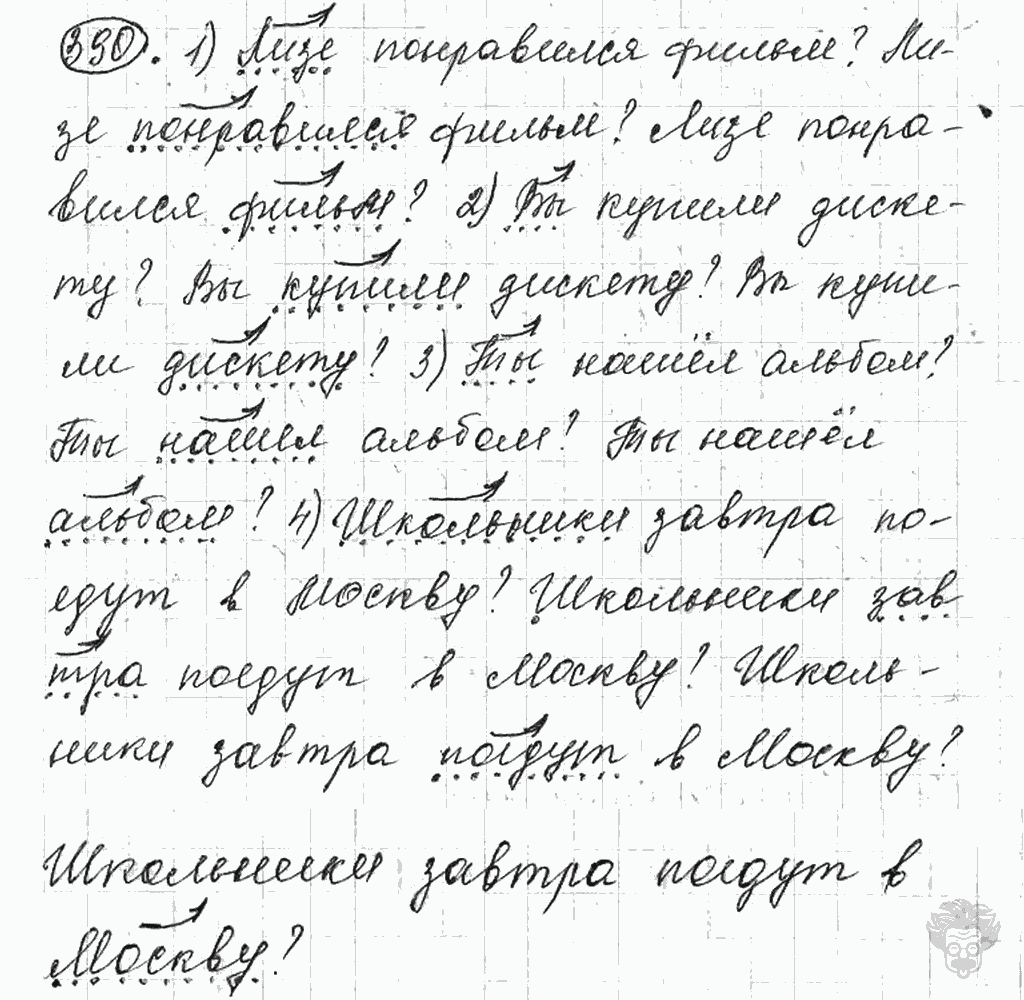 390. 1) Лизе понравился фильм? Ли-
зе понравился фильм? Лизе понра-
вился фильм? 2) Вы купили диске-
ту? Вы купили дискету? Вы купи-
ли дискету? 3) Ты нашёл альбом?
Ты нашел альбом? Ты нашёл
альбом? 4) Школьники завтра по-
едут в Москву? Школьники зав
тра поедут в Москву? Школь-
ники завтра поедут в Москву?
Школьники завтра поедут в
Москву?